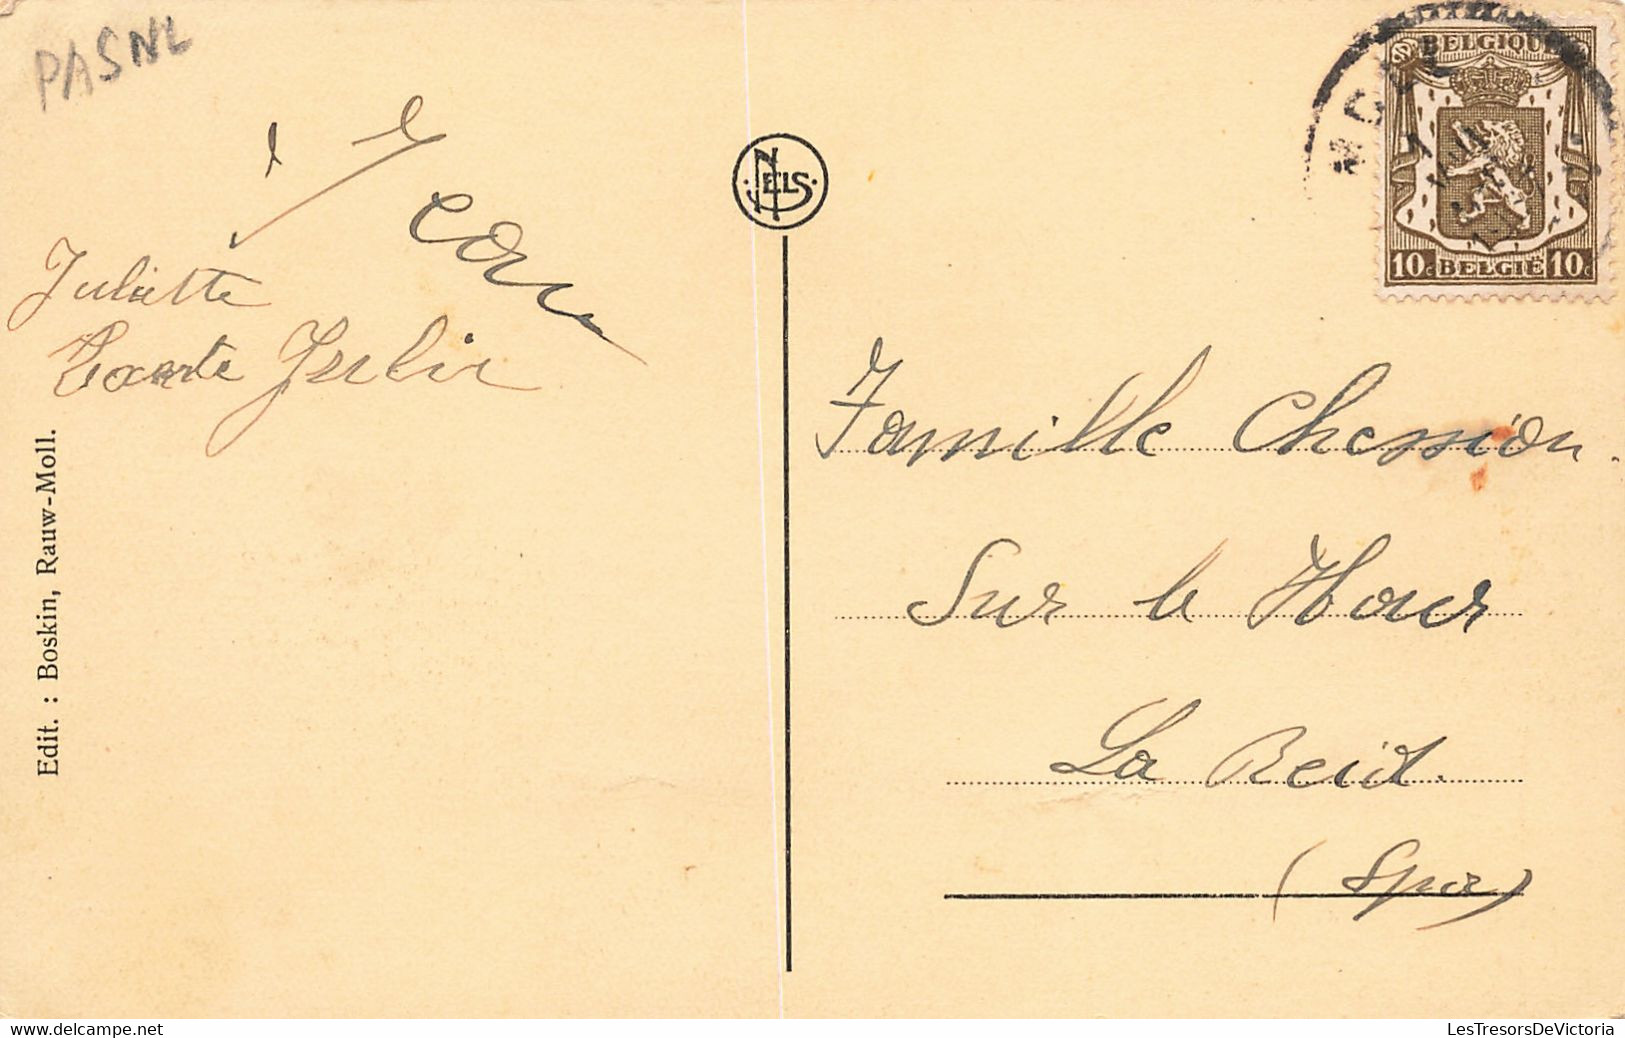 PASNL
Juliette
Tante Julie
Edit. : Boskin, Rauw-Moll.
NELS
MOLL
BELGIQUE
10c BELGIË 10c
Famille Chession.
Sur le Hour
La Reid.
(Spa)
LesTresorsDeVictoria
www.delcampe.net